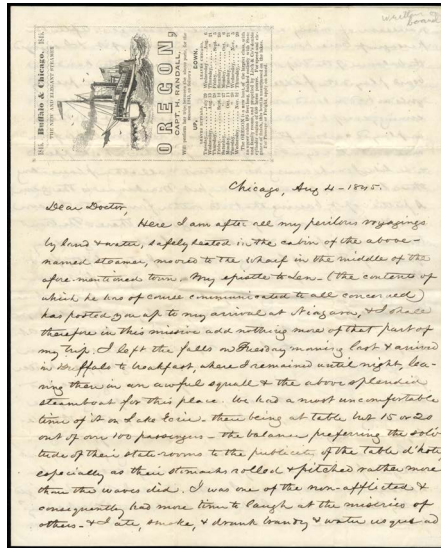 written on board
1845. Buffalo & Chicago. 1845.
THE NEW AND ELEGANT STEAMER
OREGON,
CAPT. H. RANDALL,
UP. DOWN.
Chicago, Aug 4 - 1845.
Dear Doctor,
Here I am after all my perilous voyagings
by land & water, safely seated in the cabin of the above-
named steamer, moored to the wharf in the middle of the
afore-mentioned town. My epistle to Len - (the contents of
which he has of course communicated to all concerned)
has posted you up to my arrival at Niagara, & I shall
therefore in this missive add nothing more of that part of
my trip. I left the falls on Tuesday morning last & arrived
in Buffalo to breakfast, where I remained until night, lea-
ving then in an awful squall & the above splendid
steamboat for this place. We had a most uncomfortable
time of it on Lake Erie - there being at table but 15 or 20
out of our 100 passengers - the balance preferring the soli-
tude of their state rooms to the publicity of the table d'hote,
especially as their stomachs rolled & pitched rather more
than the waves did. I was one of the non-afflicted &
consequently had more time to laugh at the miseries of
others - & I ate, smoke, & drank brandy & water usque ad